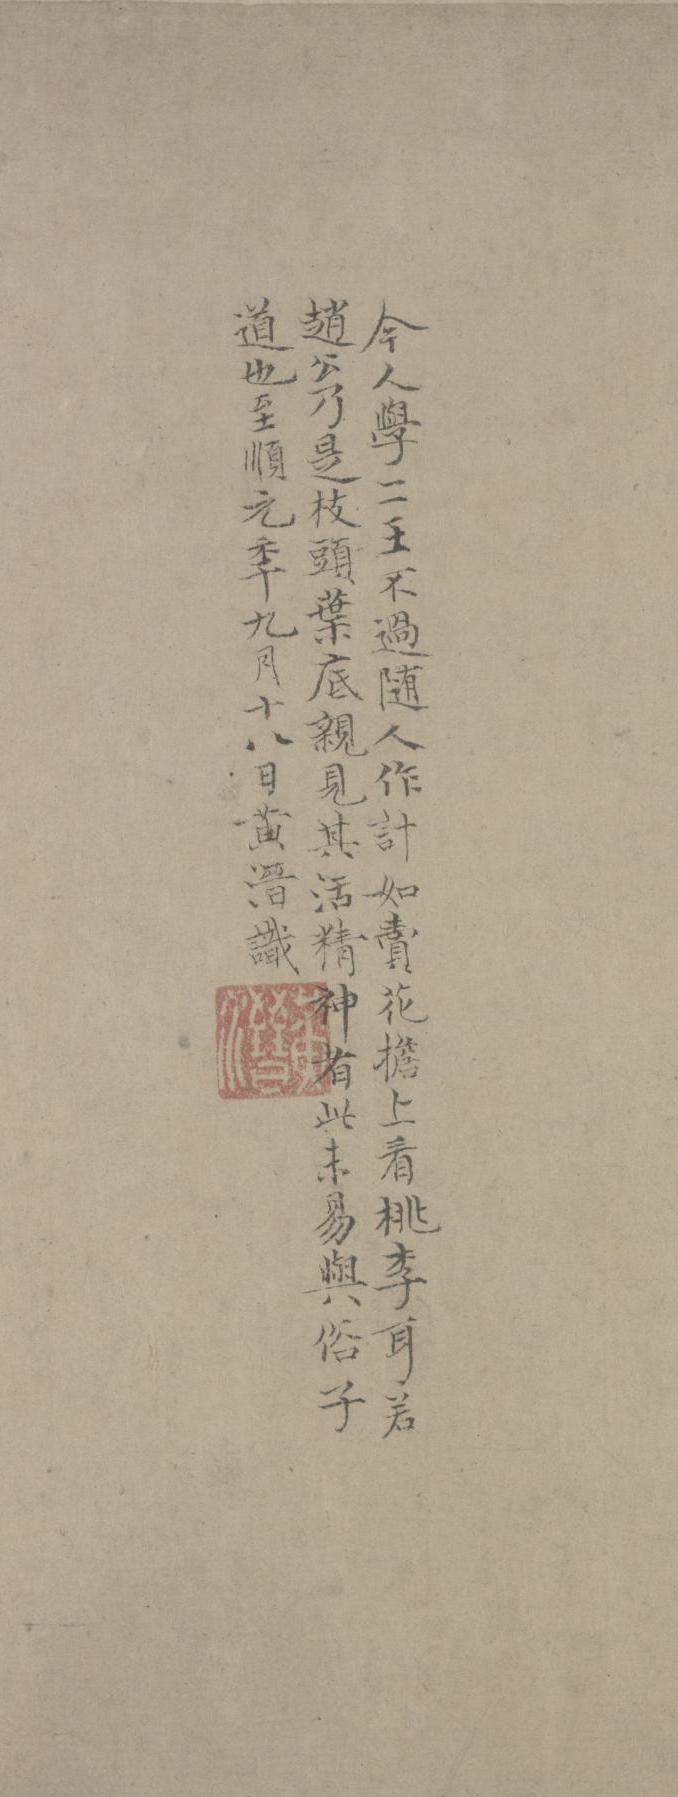 今人學二王不過随人作計如賣花擔上看桃李耳若
趙公乃是枝頭葉底親見其活精神者此未易與俗子
道也至順元季九月十八日黄溍識